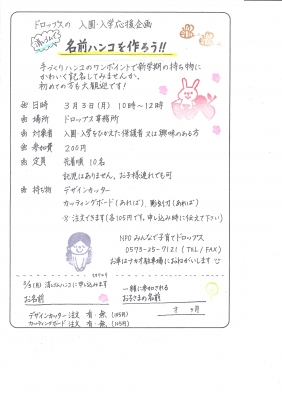 ドロップスの 入園・入学応援企画
消しゴムで 名前ハンコを作ろう!!
手づくりハンコのワンポイントで新学期の持ち物に
かわいく記名してみませんか。
初めての方も大歓迎です!
日時 3月3日(月) 10時〜12時
場所 ドロップス事務所
対象者 入園・入学をひかえた保護者又は興味のある方
参加費 200円
定員 先着順 10名
託児はありません。お子様連れでも可
持ち物 デザインカッター
カッティングボード(あれば)、彫刻刀(あれば)
※注文できます(各105円です。申し込み時に伝えて下さい)
NPO みんなで子育てドロップス
0573-25-7121 (TEL/FAX)
お車はナカオ駐車場におねがいします
3/3(月) 消しゴムハンコに申し込みます
お名前
一緒に参加される
お子さまの名前
才 ヶ月
デザインカッター 注文 有・無 (105円)
カッティングボード 注文 有・無 (105円)